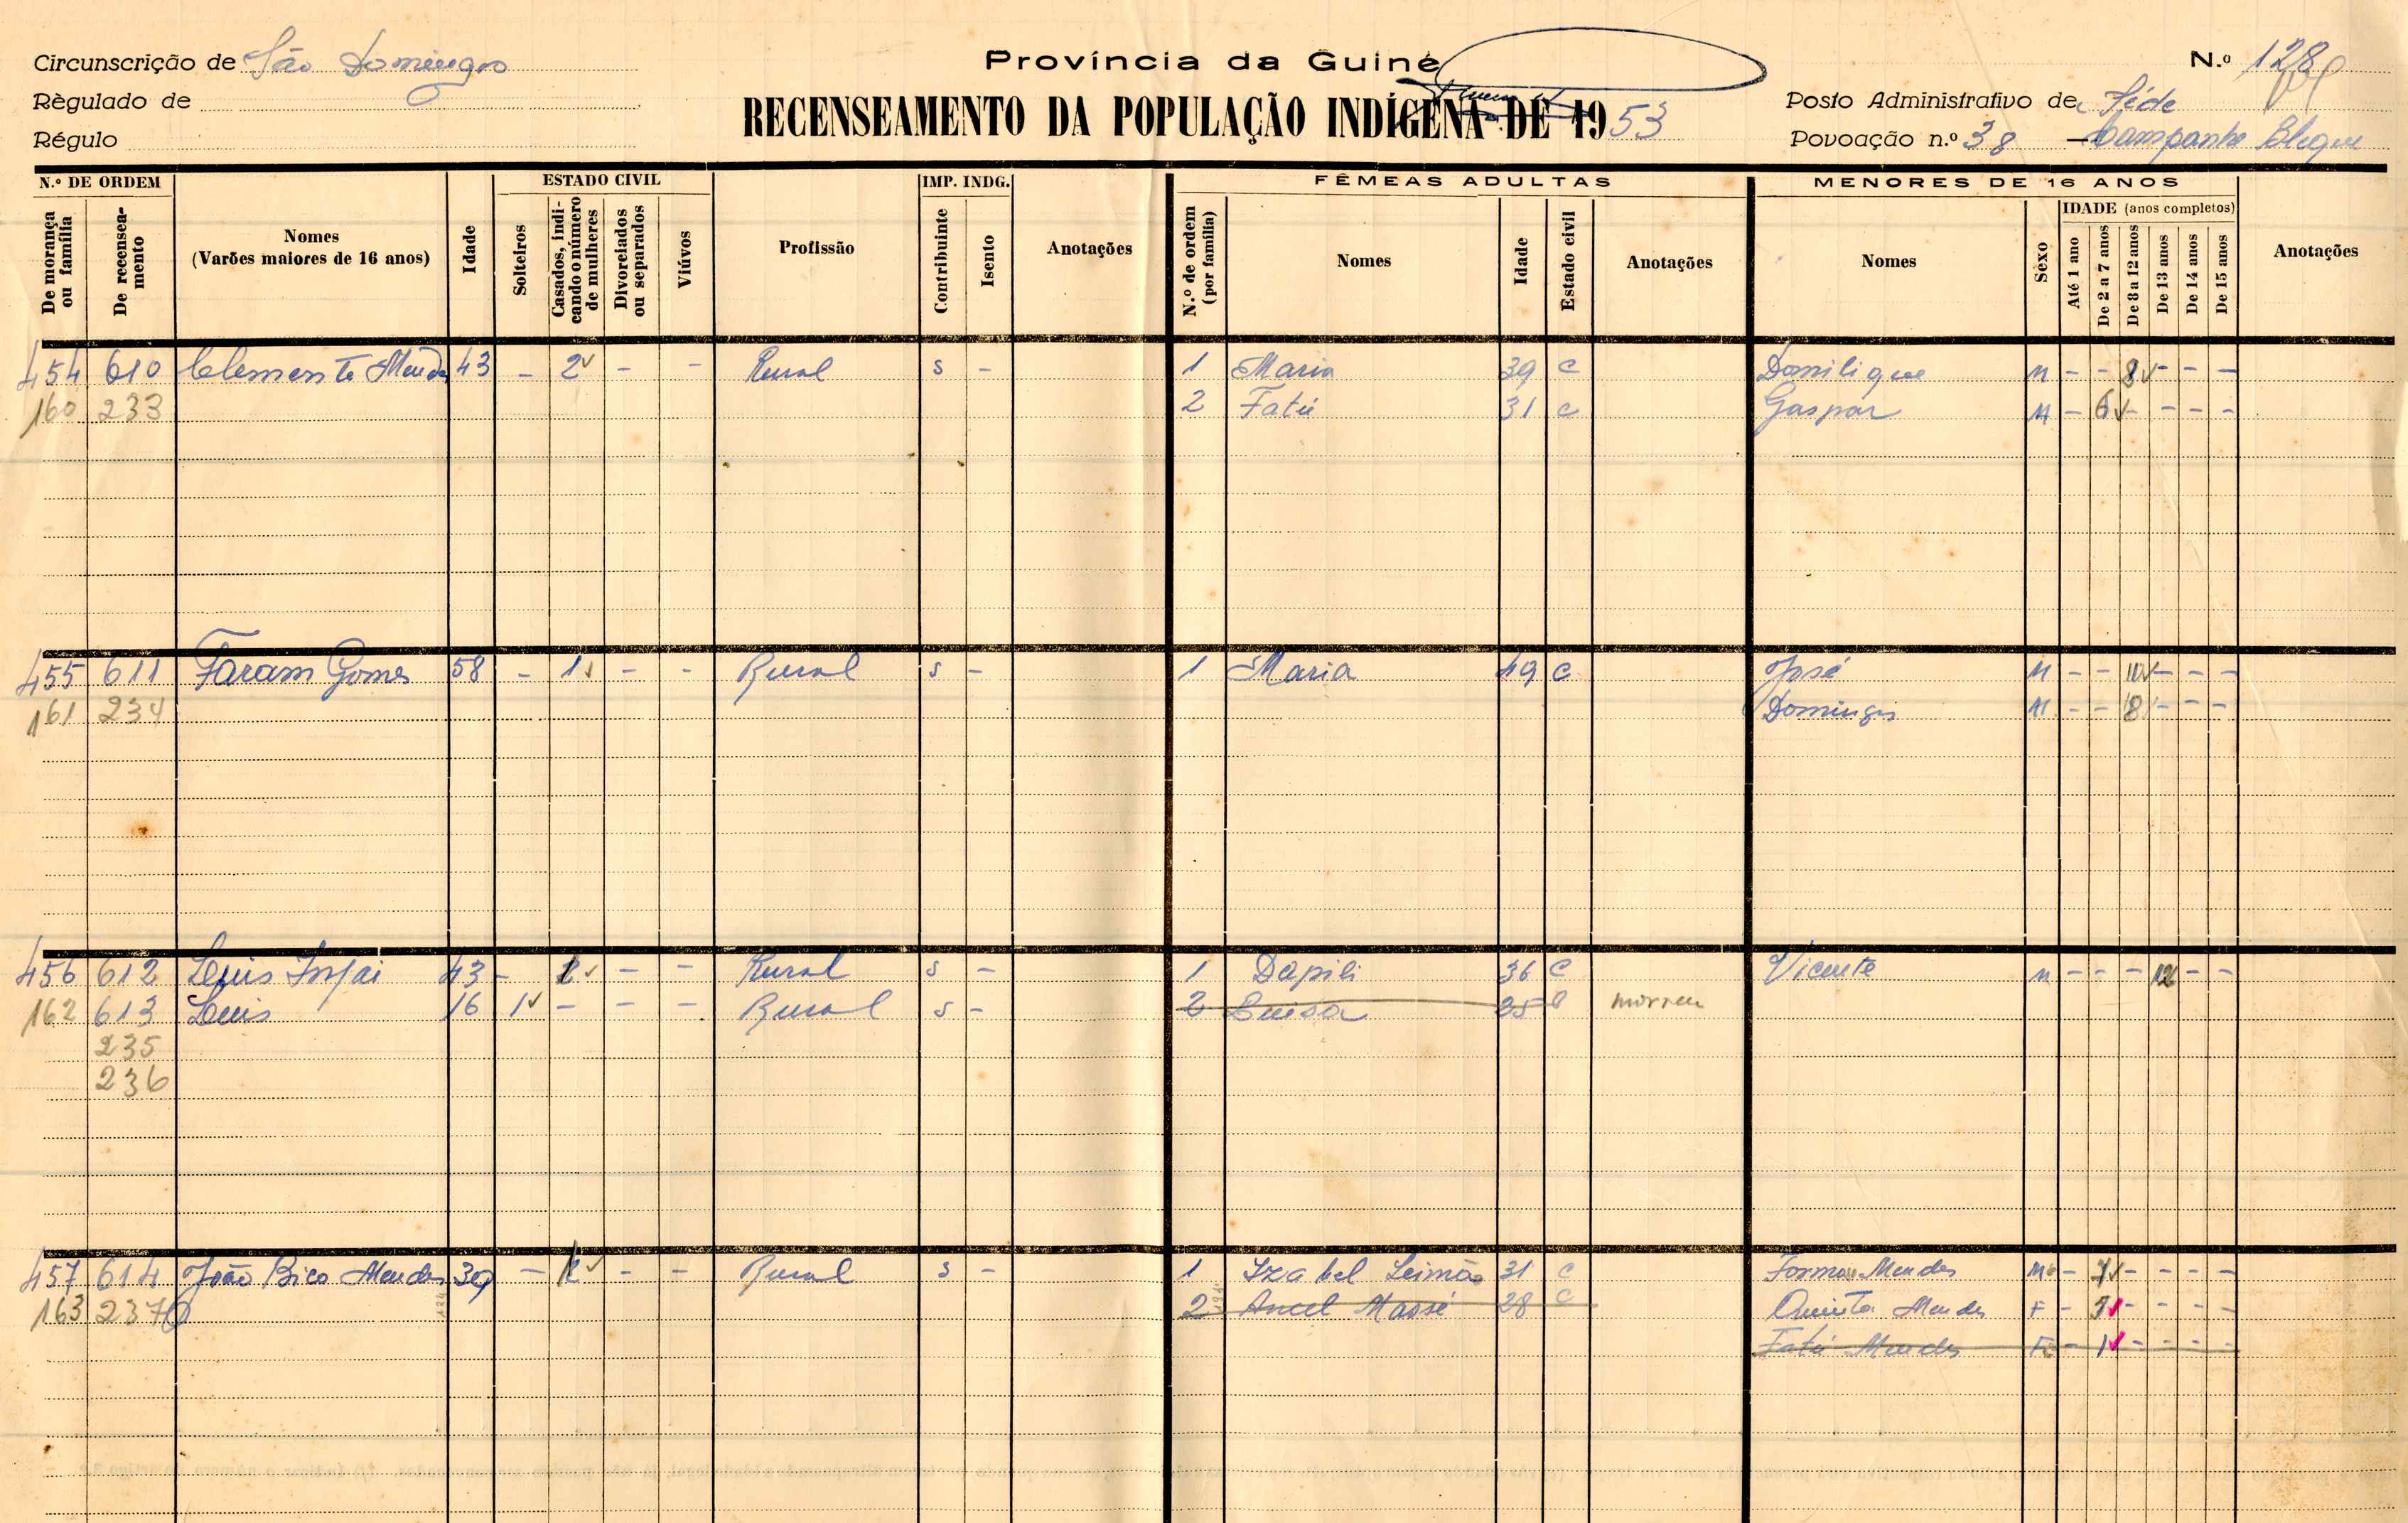 Circunscrição de São Domingos
Règulado de
Régulo
Província da Guiné
RECENSEAMENTO DA POPULAÇÃO INDÍGENA DE 1953
N.º 128
Posto Administrativo de Séde
Povoação n.º 38 Campanhe
N.º DE ORDEM
De morança ou família
De recenseamento
Nomes
(Varões maiores de 16 anos)
Idade
ESTADO CIVIL
Solteiros
Casados, indicando o número de mulheres
Divorciados ou separados
Viúvos
Profissão
IMP. INDG.
Contribuinte
Isento
Anotações
FÊMEAS ADULTAS
N.º de ordem (por família)
Nomes
Idade
Estado civil
Anotações
MENORES DE 16 ANOS
Nomes
Sexo
IDADE (anos completos)
Até 1 ano
De 2 a 7 anos
De 8 a 12 anos
De 13 anos
De 14 anos
De 15 anos
Anotações
454 610 Clemente Mendes 43 - 2✓ - - Rural s - 1 Maria 39 C Domilique M - - 8✓ - - -
160 233 2 Fatú 31 C Gaspar M - 6✓ - - - -
455 611 Faram Gomes 58 - 1✓ - - Rural s - 1 Maria 49 C José M - - 10✓ - - -
161 234 Domingos M - - 8 - - -
456 612 Luis Injai 43 - ✓ - - Rural s - 1 Dapili 36 C Vicente M - - - 12 - -
162 613 Luis 16 1✓ - - - Rural s - 2 Luisa 25 C morreu
235
236
457 614 João Bico Mendes 39 - ✓ - - Rural s - 1 Izabel 31 C Mendes M - ✓ - - - -
163 237 2 Massé 28 C Quinta Mendes F - ✓ - - - -
Fatú Mendes F - 1✓ - - - -